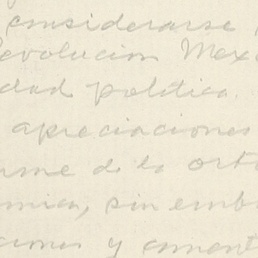 considerarse
evolucion Mex
dad politica.
apreciaciones
rme de la orto
mica, sin emb
ciones y coment